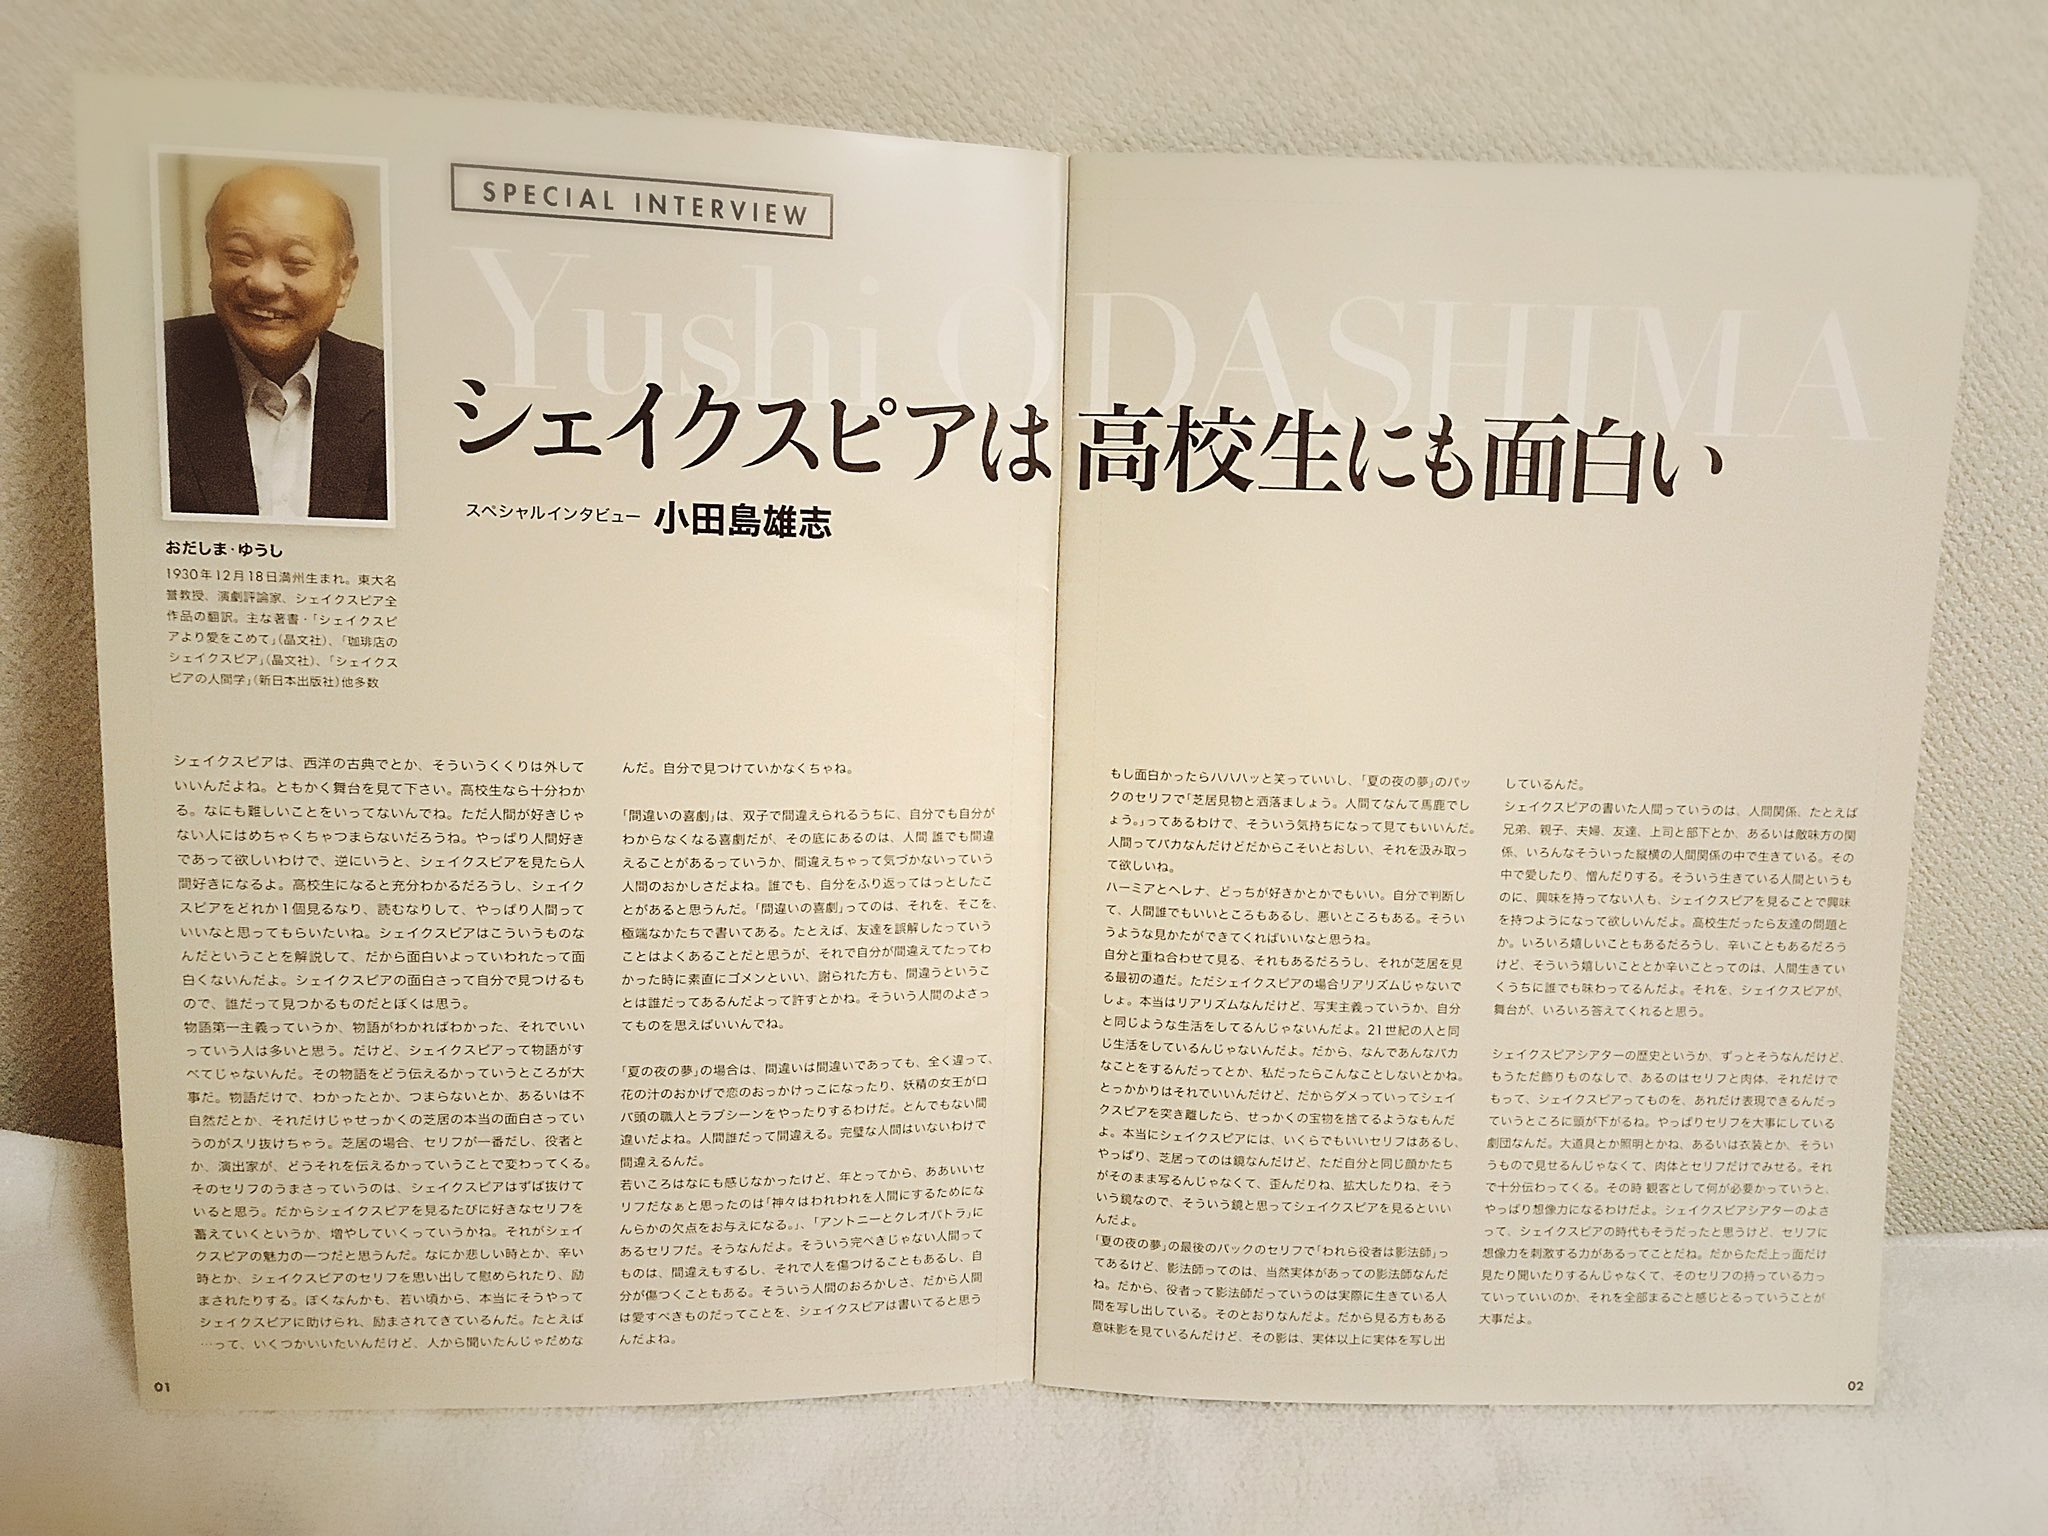 SPECIAL INTERVIEW
Yushi ODASHIMA
シェイクスピアは高校生にも面白い
スペシャルインタビュー 小田島雄志
おだしま・ゆうし
1930年12月18日満州生まれ。東大名
誉教授、演劇評論家、シェイクスピア全
作品の翻訳。主な著書・「シェイクスピ
アより愛をこめて」(晶文社)、「珈琲店の
シェイクスピア」(晶文社)、「シェイクス
ピアの人間学」(新日本出版社)他多数
シェイクスピアは、西洋の古典でとか、そういうくくりは外して
いいんだよね。ともかく舞台を見て下さい。高校生なら十分わか
る。なにも難しいことをいってないんでね。ただ人間が好きじゃ
ない人にはめちゃくちゃつまらないだろうね。やっぱり人間好き
であって欲しいわけで、逆にいうと、シェイクスピアを見たら人
間好きになるよ。高校生になると充分わかるだろうし、シェイク
スピアをどれか1個見るなり、読むなりして、やっぱり人間って
いいなと思ってもらいたいね。シェイクスピアはこういうものな
んだということを解説して、だから面白いよっていわれたって面
白くないんだよ。シェイクスピアの面白さって自分で見つけるも
ので、誰だって見つかるものだとぼくは思う。
物語第一主義っていうか、物語がわかればわかった、それでいい
っていう人は多いと思う。だけど、シェイクスピアって物語がす
べてじゃないんだ。その物語をどう伝えるかっていうところが大
事だ。物語だけで、わかったとか、つまらないとか、あるいは不
自然だとか、それだけじゃせっかくの芝居の本当の面白さってい
うのがスリ抜けちゃう。芝居の場合、セリフが一番だし、役者と
か、演出家が、どうそれを伝えるかっていうことで変わってくる。
そのセリフのうまさっていうのは、シェイクスピアはずば抜けて
いると思う。だからシェイクスピアを見るたびに好きなセリフを
蓄えていくというか、増やしていくっていうかね。それがシェイ
クスピアの魅力の一つだと思うんだ。なにか悲しい時とか、辛い
時とか、シェイクスピアのセリフを思い出して慰められたり、励
まされたりする。ぼくなんかも、若い頃から、本当にそうやって
シェイクスピアに助けられ、励まされてきているんだ。たとえば
…って、いくつかいいたいんだけど、人から聞いたんじゃだめな
んだ。自分で見つけていかなくちゃね。
「間違いの喜劇」は、双子で間違えられるうちに、自分でも自分が
わからなくなる喜劇だが、その底にあるのは、人間 誰でも間違
えることがあるっていうか、間違えちゃって気づかないっていう
人間のおかしさだよね。誰でも、自分をふり返ってはっとしたこ
とがあると思うんだ。「間違いの喜劇」ってのは、それを、そこを、
極端なかたちで書いてある。たとえば、友達を誤解したっていう
ことはよくあることだと思うが、それで自分が間違えてたってわ
かった時に素直にゴメンといい、謝られた方も、間違うというこ
とは誰だってあるんだよって許すとかね。そういう人間のよさっ
てものを思えばいいんでね。
「夏の夜の夢」の場合は、間違いは間違いであっても、全く違って、
花の汁のおかげで恋のおっかけっこになったり、妖精の女王がロ
バ頭の職人とラブシーンをやったりするわけだ。とんでもない間
違いだよね。人間誰だって間違える。完璧な人間はいないわけで
間違えるんだ。
若いころはなにも感じなかったけど、年とってから、ああいいセ
リフだなぁと思ったのは「神々はわれわれを人間にするためにな
んらかの欠点をお与えになる。」、「アントニーとクレオパトラ」に
あるセリフだ。そうなんだよ。そういう完ぺきじゃない人間って
ものは、間違えもするし、それで人を傷つけることもあるし、自
分が傷つくこともある。そういう人間のおろかしさ、だから人間
は愛すべきものだってことを、シェイクスピアは書いてると思う
んだよね。
もし面白かったらハハハッと笑っていいし、「夏の夜の夢」のパッ
クのセリフで「芝居見物と洒落ましょう。人間てなんて馬鹿でし
ょう。」ってあるわけで、そういう気持ちになって見てもいいんだ。
人間ってバカなんだけどだからこそいとおしい、それを汲み取っ
て欲しいね。
ハーミアとヘレナ、どっちが好きかとかでもいい。自分で判断し
て、人間誰でもいいところもあるし、悪いところもある。そうい
うような見かたができてくればいいなと思うね。
自分と重ね合わせて見る、それもあるだろうし、それが芝居を見
る最初の道だ。ただシェイクスピアの場合リアリズムじゃないで
しょ。本当はリアリズムなんだけど、写実主義っていうか、自分
と同じような生活をしてるんじゃないんだよ。21世紀の人と同
じ生活をしているんじゃないんだよ。だから、なんであんなバカ
なことをするんだってとか、私だったらこんなことしないとかね。
とっかかりはそれでいいんだけど、だからダメっていってシェイ
クスピアを突き離したら、せっかくの宝物を捨てるようなもんだ
よ。本当にシェイクスピアには、いくらでもいいセリフはあるし、
やっぱり、芝居ってのは鏡なんだけど、ただ自分と同じ顔かたち
がそのまま写るんじゃなくて、歪んだりね、拡大したりね、そう
いう鏡なので、そういう鏡と思ってシェイクスピアを見るといい
んだよ。
「夏の夜の夢」の最後のパックのセリフで「われら役者は影法師」っ
てあるけど、影法師ってのは、当然実体があっての影法師なんだ
ね。だから、役者って影法師だっていうのは実際に生きている人
間を写し出している。そのとおりなんだよ。だから見る方もある
意味影を見ているんだけど、その影は、実体以上に実体を写し出
しているんだ。
シェイクスピアの書いた人間っていうのは、人間関係、たとえば
兄弟、親子、夫婦、友達、上司と部下とか、あるいは敵味方の関
係、いろんなそういった縦横の人間関係の中で生きている。その
中で愛したり、憎んだりする。そういう生きている人間というも
のに、興味を持ってない人も、シェイクスピアを見ることで興味
を持つようになって欲しいんだよ。高校生だったら友達の問題と
か。いろいろ嬉しいこともあるだろうし、辛いこともあるだろう
けど、そういう嬉しいこととか辛いことってのは、人間生きてい
くうちに誰でも味わってるんだよ。それを、シェイクスピアが、
舞台が、いろいろ答えてくれると思う。
シェイクスピアシアターの歴史というか、ずっとそうなんだけど、
もうただ飾りものなしで、あるのはセリフと肉体、それだけで
もって、シェイクスピアってものを、あれだけ表現できるんだっ
ていうところに頭が下がるね。やっぱりセリフを大事にしている
劇団なんだ。大道具とか照明とかね、あるいは衣装とか、そうい
うもので見せるんじゃなくて、肉体とセリフだけでみせる。それ
で十分伝わってくる。その時 観客として何が必要かっていうと、
やっぱり想像力になるわけだよ。シェイクスピアシアターのよさ
って、シェイクスピアの時代もそうだったと思うけど、セリフに
想像力を刺激する力があるってことだね。だからただ上っ面だけ
見たり聞いたりするんじゃなくて、そのセリフの持っている力っ
ていっていいのか、それを全部まるごと感じとるっていうことが
大事だよ。
01
02